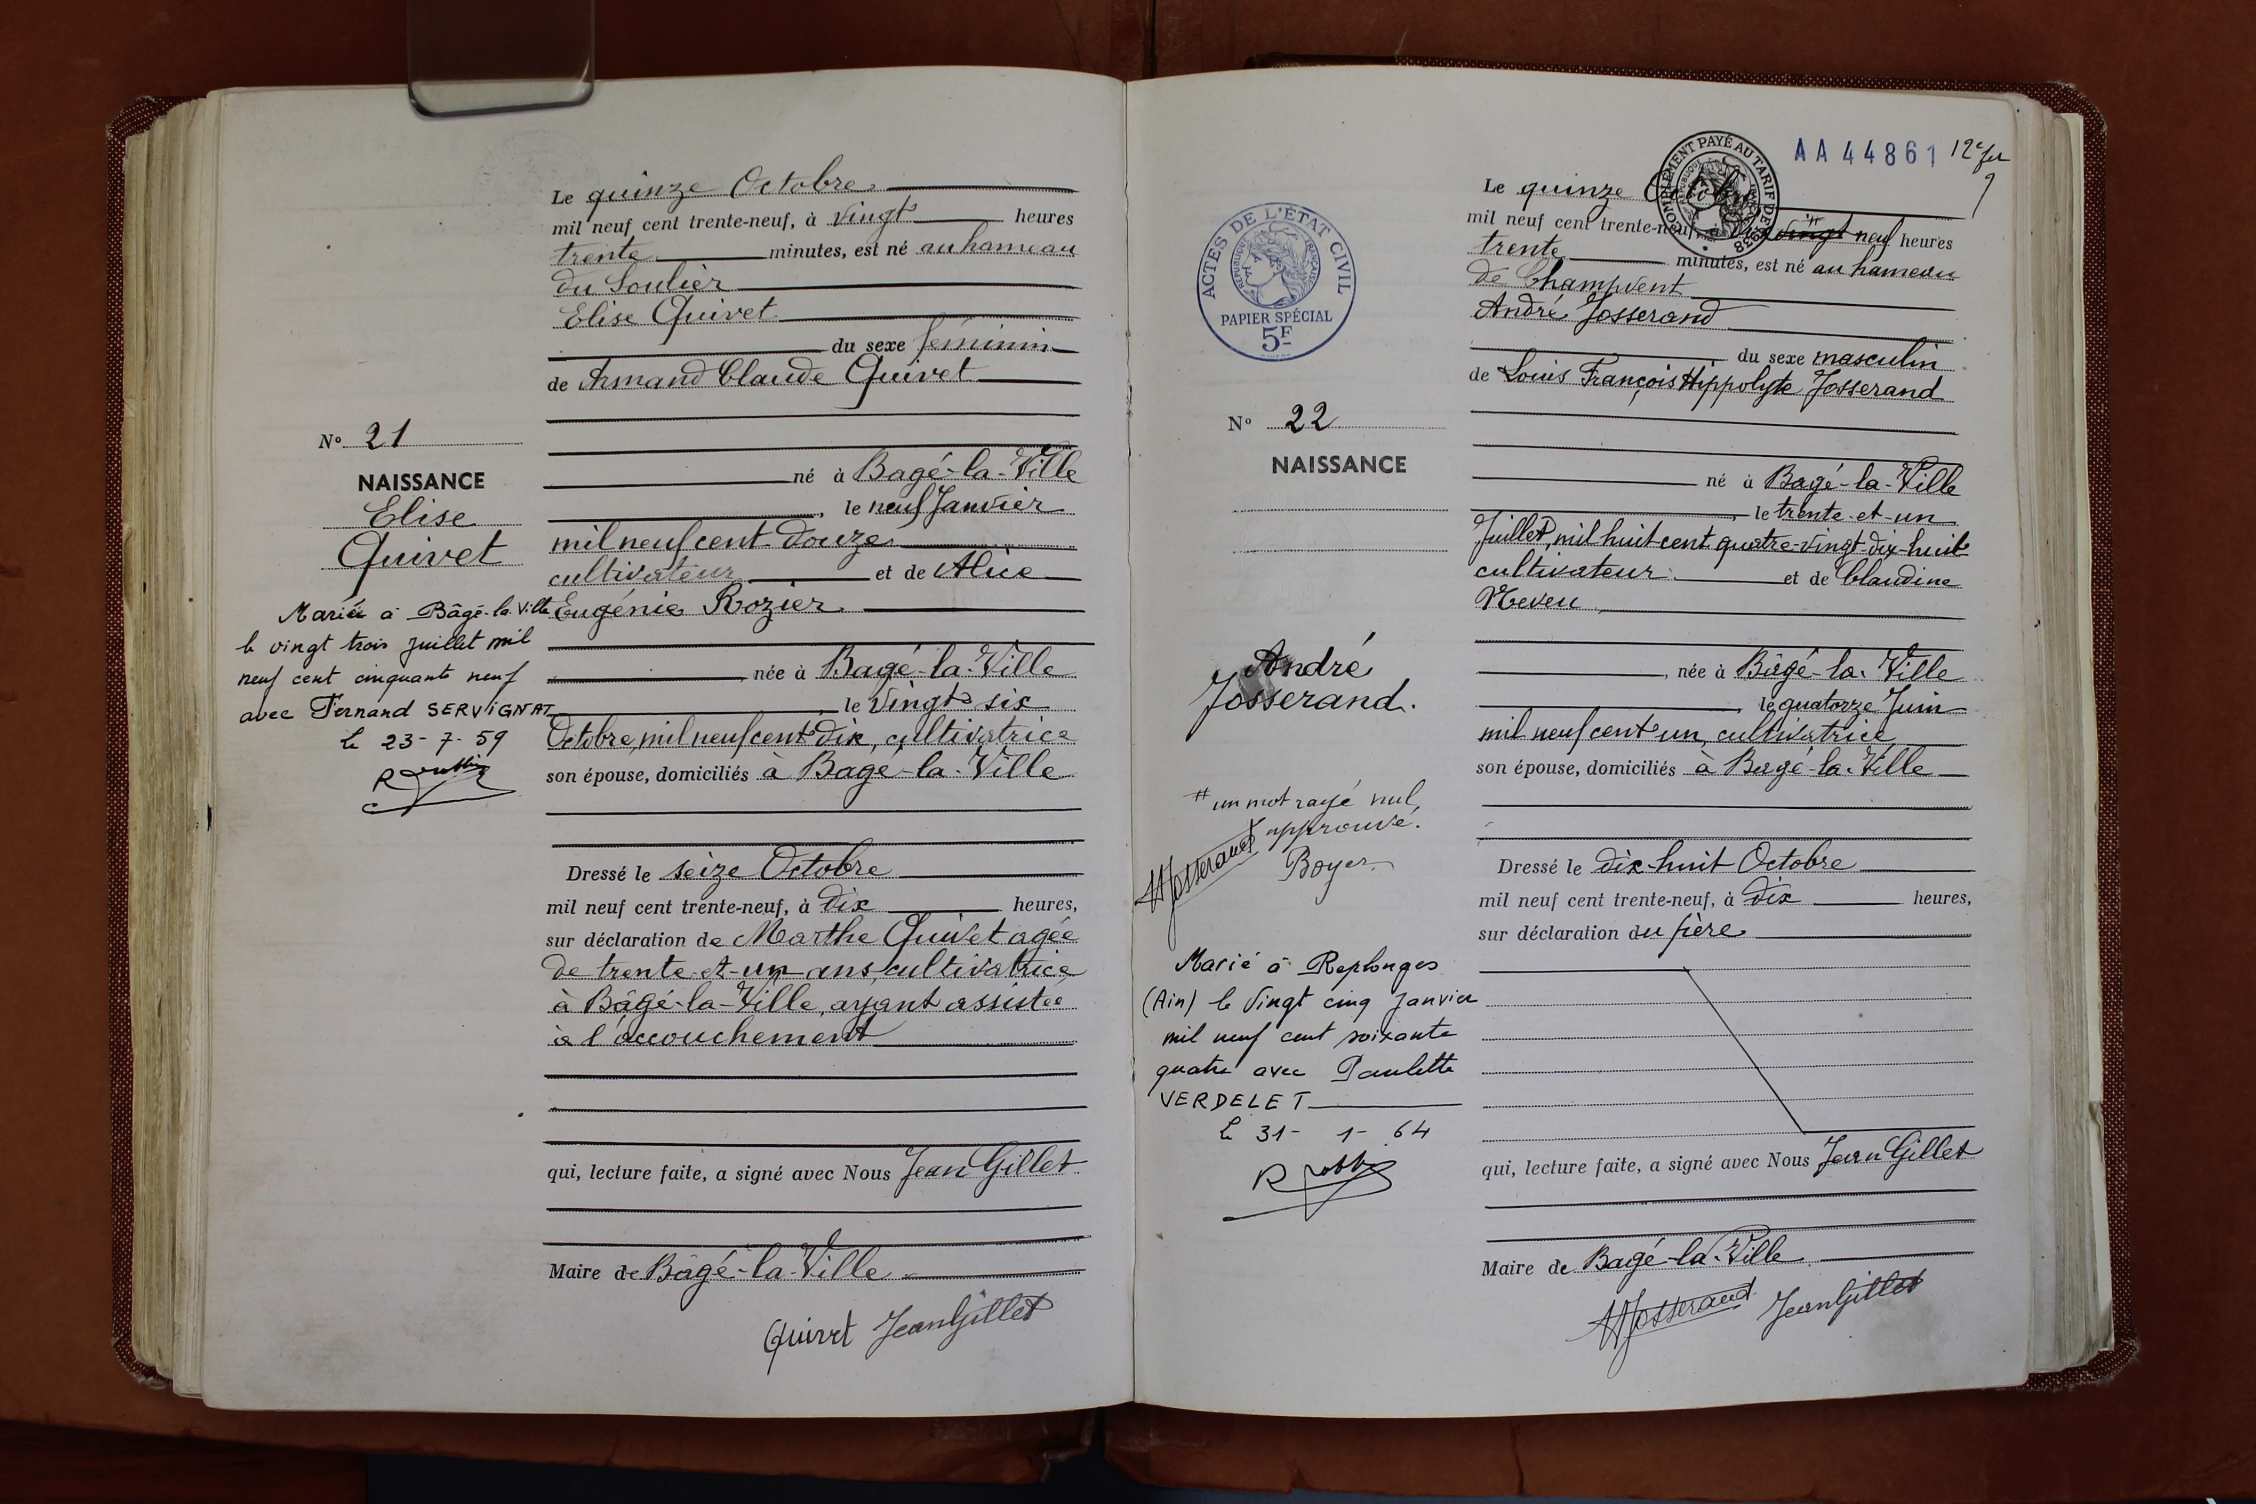 Le quinze Octobre
mil neuf cent trente-neuf, à vingt heures
trente minutes, est né au hameau
du Soulier
Elise Quivet
du sexe féminin
de Armand Claude Quivet
N° 21
NAISSANCE
Elise
Quivet
né à Bagé-la-Ville
, le neuf Janvier
mil neuf cent douze
cultivateur et de Alice
Eugénie Rozier
née à Bagé-la-Ville
, le vingt six
Octobre mil neuf cent dix, cultivatrice
son épouse, domiciliés à Bagé-la-Ville
Mariée à Bâgé-la-Ville
le vingt trois juillet mil
neuf cent cinquante neuf
avec Fernand SERVIGNAT
Le 23-7-59
Dressé le seize Octobre
mil neuf cent trente-neuf, à dix heures,
sur déclaration de Marthe Quivet agée
de trente-et-un ans, cultivatrice
à Bâgé-la-Ville, ayant assistée
à l'accouchement
qui, lecture faite, a signé avec Nous Jean Gillet
Maire de Bâgé-la-Ville
Quivet Jean Gillet
AA44861
CONTREMENT PAYÉ AU TARIF DE 1938
ACTES DE L'ÉTAT CIVIL
RÉPUBLIQUE FRANÇAISE
PAPIER SPÉCIAL
5F
Le quinze Octobre
mil neuf cent trente-neuf, à vingt neuf heures
trente minutes, est né au hameau
de Champvent
André Josserand
du sexe masculin
de Louis François Hippolyte Josserand
N° 22
NAISSANCE
né à Bagé-la-Ville
, le trente-et-un
Juillet, mil huit cent quatre-vingt-dix-huit
cultivateur et de Claudine
Neveu
née à Bâgé-la-Ville
, le quatorze Juin
mil neuf cent un, cultivatrice
son épouse, domiciliés à Bagé-la-Ville
André
Josserand.
# un mot rayé nul,
approuvé.
Josserand Boyer
Marié à Replonges
(Ain) le vingt cinq janvier
mil neuf cent soixante
quatre avec Paulette
VERDELET
Le 31-1-64
Dressé le dix-huit Octobre
mil neuf cent trente-neuf, à dix heures,
sur déclaration du père
qui, lecture faite, a signé avec Nous Jean Gillet
Maire de Bagé-la-Ville
Josserand Jean Gillet